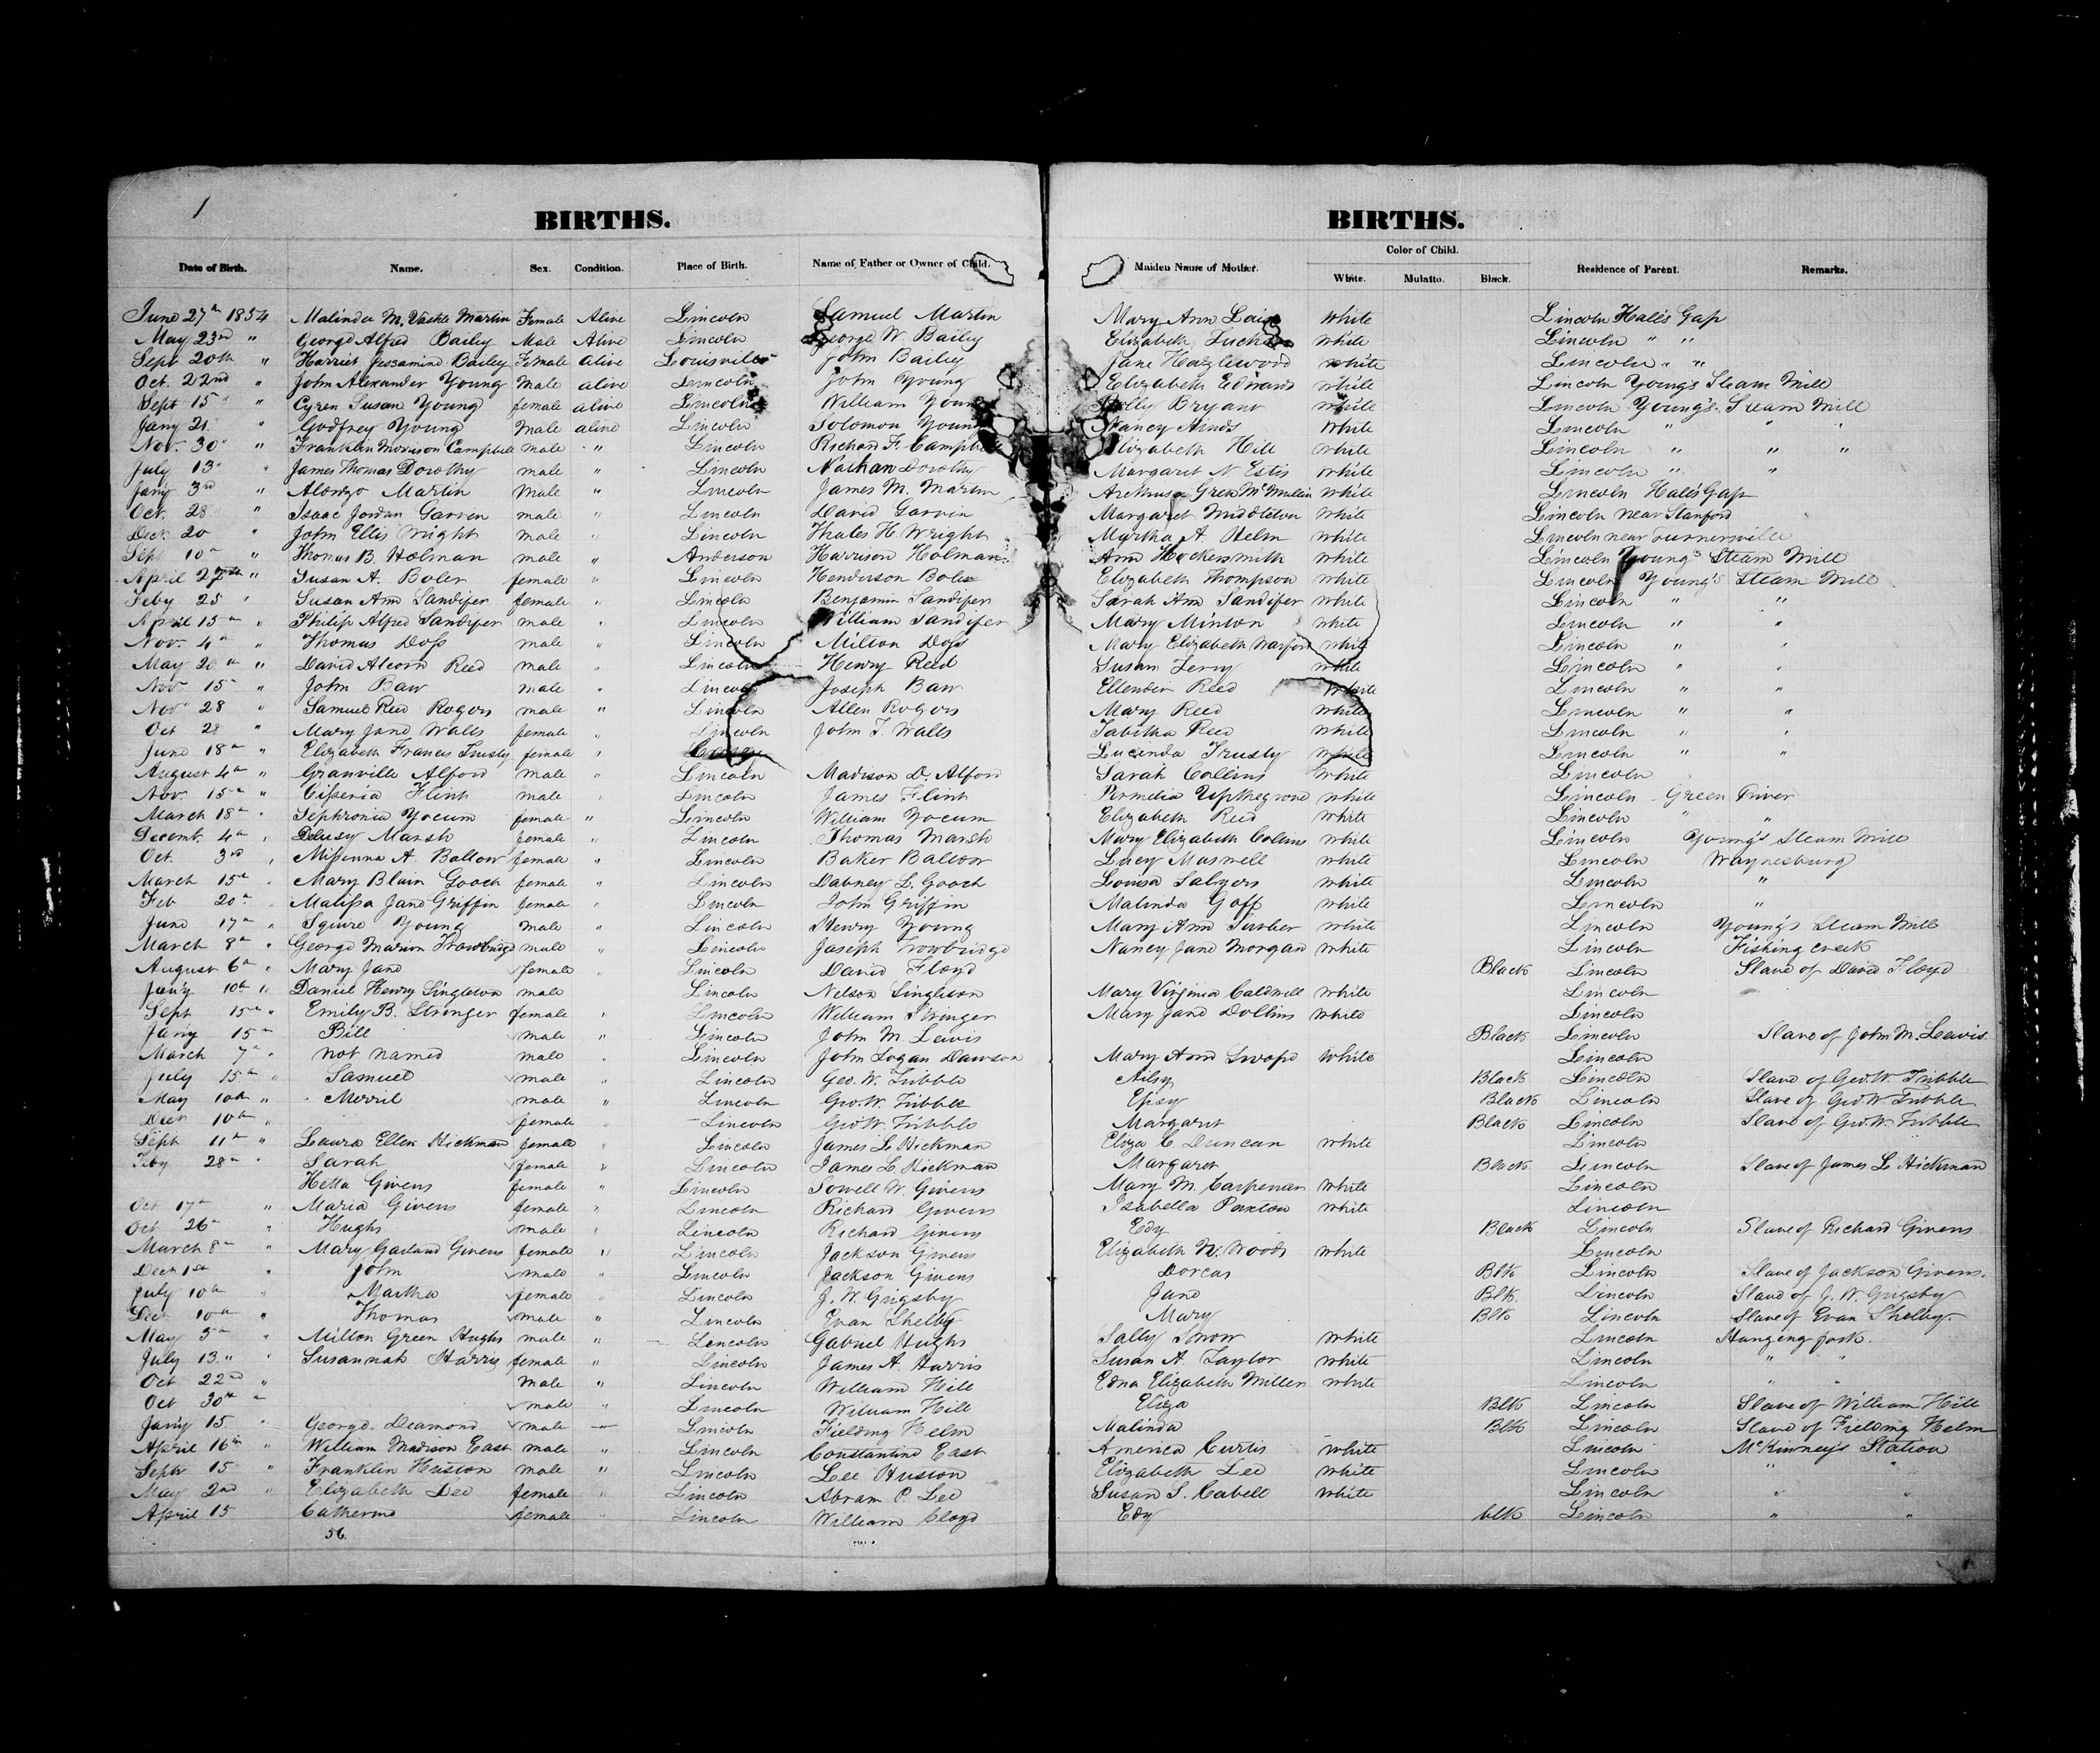 1
BIRTHS. BIRTHS.
Date of Birth. Name. Sex. Condition. Place of Birth. Name of Father or Owner of Child. Maiden Name of Mother. Color of Child. White. Mulatto. Black. Residence of Parent. Remarks.
June 27th 1854 Malinda M. Martin Female Alive Lincoln Samuel Martin Mary Ann white Lincoln Hall's Gap
May 23rd " George Alfred Bailey Male Alive Lincoln George W. Bailey Elizabeth white Lincoln " "
Sept 20th " Harriet Bailey Female alive Louisville John Bailey Jane Hazlewood white Lincoln " "
Oct. 22nd " John Alexander Young Male alive Lincoln John Young Elizabeth Edwards white Lincoln Young's Steam Mill
Sept 15 " Cyren Susan Young female alive Lincoln William Young Polly Bryant white Lincoln Young's Steam Mill
Jany 21 " Godfrey Young Male alive Lincoln Solomon Young Nancy white Lincoln " " "
Nov. 30 " Franklin Morrison Campbell male " Lincoln Richard F. Campbell Elizabeth Hill white Lincoln " " "
July 13 " James Thomas Dorothy male " Lincoln Nathan Dorothy Margaret N Estis white Lincoln " "
Jany 3rd " Alonzo Martin male " Lincoln James M. Martin Arethusa Green McMullin white Lincoln Hall's Gap
Oct. 28 Isaac Jordan Garvin male " Lincoln David Garvin Margaret Middleton white Lincoln near Stanford
Dec 20 " John Ellis Wright male " Lincoln Thales H. Wright Martha A. Helm white Lincoln near Turnersville
Sept 10th " Thomas B. Holman male " Anderson Harrison Holman Ann Hockersmith white Lincoln Young's Steam Mill
April 27th " Susan A. Boler female " Lincoln Henderson Boler Elizabeth Thompson white Lincoln Young's Steam Mill
Feby 25 " Susan Ann Sandifer female " Lincoln Benjamin Sandifer Sarah Ann Sandifer white Lincoln " "
April 15th " Philip Alfred Sandifer male " Lincoln William Sandifer Mary Minton white Lincoln " "
Nov. 4th " Thomas Doss male " Lincoln Milton Doss Mary Elizabeth white Lincoln " "
May 20th " David Alcorn Reed male " Lincoln Henry Reed Susan Terry white Lincoln " "
Nov 15th " John Baw male " Lincoln Joseph Baw Ellender Reed white Lincoln " "
Nov 28 " Samuel Reed Rogers male " Lincoln Allen Rogers Mary Reed white Lincoln " "
Oct 28 " Mary Jane Walls female " Lincoln John T. Walls Tabitha Reed white Lincoln " "
June 18th " Elizabeth Frances Trusty female " Casey Lucinda Trusty white Lincoln " "
August 4th " Granville Alford male " Lincoln Madison D. Alford Sarah Collins white Lincoln
Nov. 15th " Flint male " Lincoln James Flint Permelia Upthegrove white Lincoln Green River
March 18th " Sephronia Yocum female " Lincoln William Yocum Elizabeth Reed white Lincoln " "
Decemb. 4th " Marsh female " Lincoln Thomas Marsh Mary Elizabeth Collins white Lincoln Young's Steam Mill
Oct. 3rd " Missenna A. Ballow female " Lincoln Baker Ballow Lucy Maxwell white Lincoln Waynesburg
March 15th " Mary Blain Gooch female " Lincoln Dabney L. Gooch Louisa Salyers white Lincoln "
Feb 20th " Malissa Jane Griffin female " Lincoln John Griffin Malinda Goff white Lincoln "
June 17th " Squire Young Male " Lincoln Henry Young Mary Ann white Lincoln Young's Steam Mill
March 8th " George Marion Trowbridge male " Lincoln Joseph Trowbridge Nancy Jane Morgan white Lincoln Fishing Creek
August 6th " Mary Jane female " Lincoln David Floyd Black Lincoln Slave of David Floyd
Jan'y 10th " Daniel Henry Singleton male Lincoln Nelson Singleton Mary Virginia Caldwell white Lincoln
Sept 15th " Emily B. Stringer female " Lincoln William Stringer Mary Jane Dollins white Lincoln
Jan'y 15th Bill male " Lincoln John M. Lewis Black Lincoln Slave of John M. Lewis
March 7th " not named male " Lincoln John Logan Dawson Mary Ann Swope white Lincoln
July 15th " Samuel male " Lincoln Geo. W. Tribble Ailsy Black Lincoln Slave of Geo. W. Tribble
May 10th " Merril male " Lincoln Geo. W. Tribble Black Lincoln Slave of Geo. W. Tribble
Dec 10th " female " Lincoln Geo W. Tribble Margaret Black Lincoln Slave of Geo. W. Tribble
Sept 11th " Laura Ellen Hickman female " Lincoln James L. Hickman Eliza C Duncan white Lincoln
Feby 28th " Sarah female " Lincoln James L. Hickman Margaret Black Lincoln Slave of James L Hickman
Hetta Givens female " Lincoln W. Givens Mary M. Carpenter white Lincoln
Oct 17th " Maria Givens female " Lincoln Richard Givens Isabella Paxton white Lincoln
Oct 26th " Hughs male " Lincoln Richard Givens Edy Black Lincoln Slave of Richard Givens
March 8th " Mary Garland Givens female " Lincoln Jackson Givens Elizabeth W. Woods white Lincoln
Dec 1st " John male " Lincoln Jackson Givens Dorcas Blk Lincoln Slave of Jackson Givens.
July 10th " Martha female " Lincoln J. W. Grigsby Jane Blk Lincoln Slave of J. W. Grigsby
Dec 10th " Thomas male " Lincoln Evan Shelby Mary Blk Lincoln Slave of Evan Shelby.
May 5th " Milton Green Hughs male " Lincoln Gabriel Hughs Sally Snow white Lincoln Hanging fork.
July 13 " " Susannah Harris female " Lincoln James A. Harris Susan A. Taylor white Lincoln " "
Oct 22nd " Male " Lincoln William Hill Edna Elizabeth Miller white Lincoln " "
Oct 30th " male " Lincoln William Hill Eliza Blk Lincoln Slave of William Hill
Jan'y 15 " George Deamond male — Lincoln Fielding Helm Malinda Blk Lincoln Slave of Fielding Helm
April 16th " William Madison East male " Lincoln Constantine East America Curtis white Lincoln McKinney's Station
Sept 15 " Franklin Huston male " Lincoln Lee Huston Elizabeth Lee white Lincoln " "
May 2nd " Elizabeth Lee female " Lincoln Abram P. Lee Susan S. Cabell white Lincoln " "
April 15 Catherine female " Lincoln William Cloyd Edy blk Lincoln " "
56.